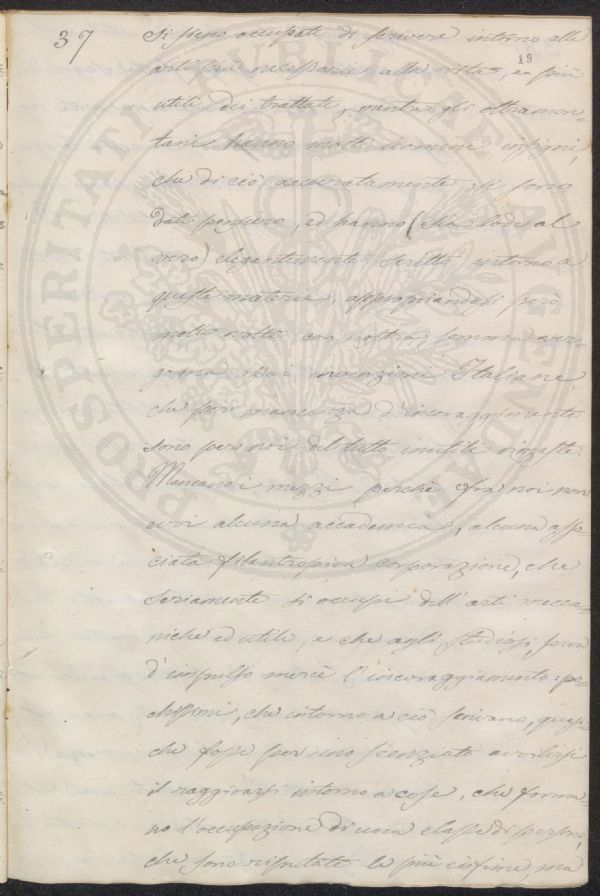 37
19
si sieno occupati di scrivere intorno alle
arti più necessarie alla vita, e più
utili dei trattati, mentre gli oltramon-
tani hanno molti uomini insigni,
che di ciò accuratamente si sono
dati pensiero, ed hanno (sia lode al
vero) elegantemente scritto intorno a
queste materie, appropriandosi però
molte volte con nostra somma ver-
gogna assai invenzioni Italiane,
che per mancanza d'incoraggimento
sono per noi del tutto inutili rimaste.
Mancano i mezzi perchè fra noi non
evvi alcuna accademia, alcuna asso-
ciata filantropica corporazione, che
seriamente si occupi dell'arti mecca-
niche ed utili, e che agli studiosi, serva
d'impulso mercè l'incoraggiamento: po-
chissimi, che intorno a ciò scrivano, quasi-
che fosse per uno scenziato avvilirsi
il raggirarsi intorno a cose, che forma-
no l'occupazione di una classe di persone,
che sono riputate le più infime, ma
PROSPERITATI PUBLICAE AUGENDAE